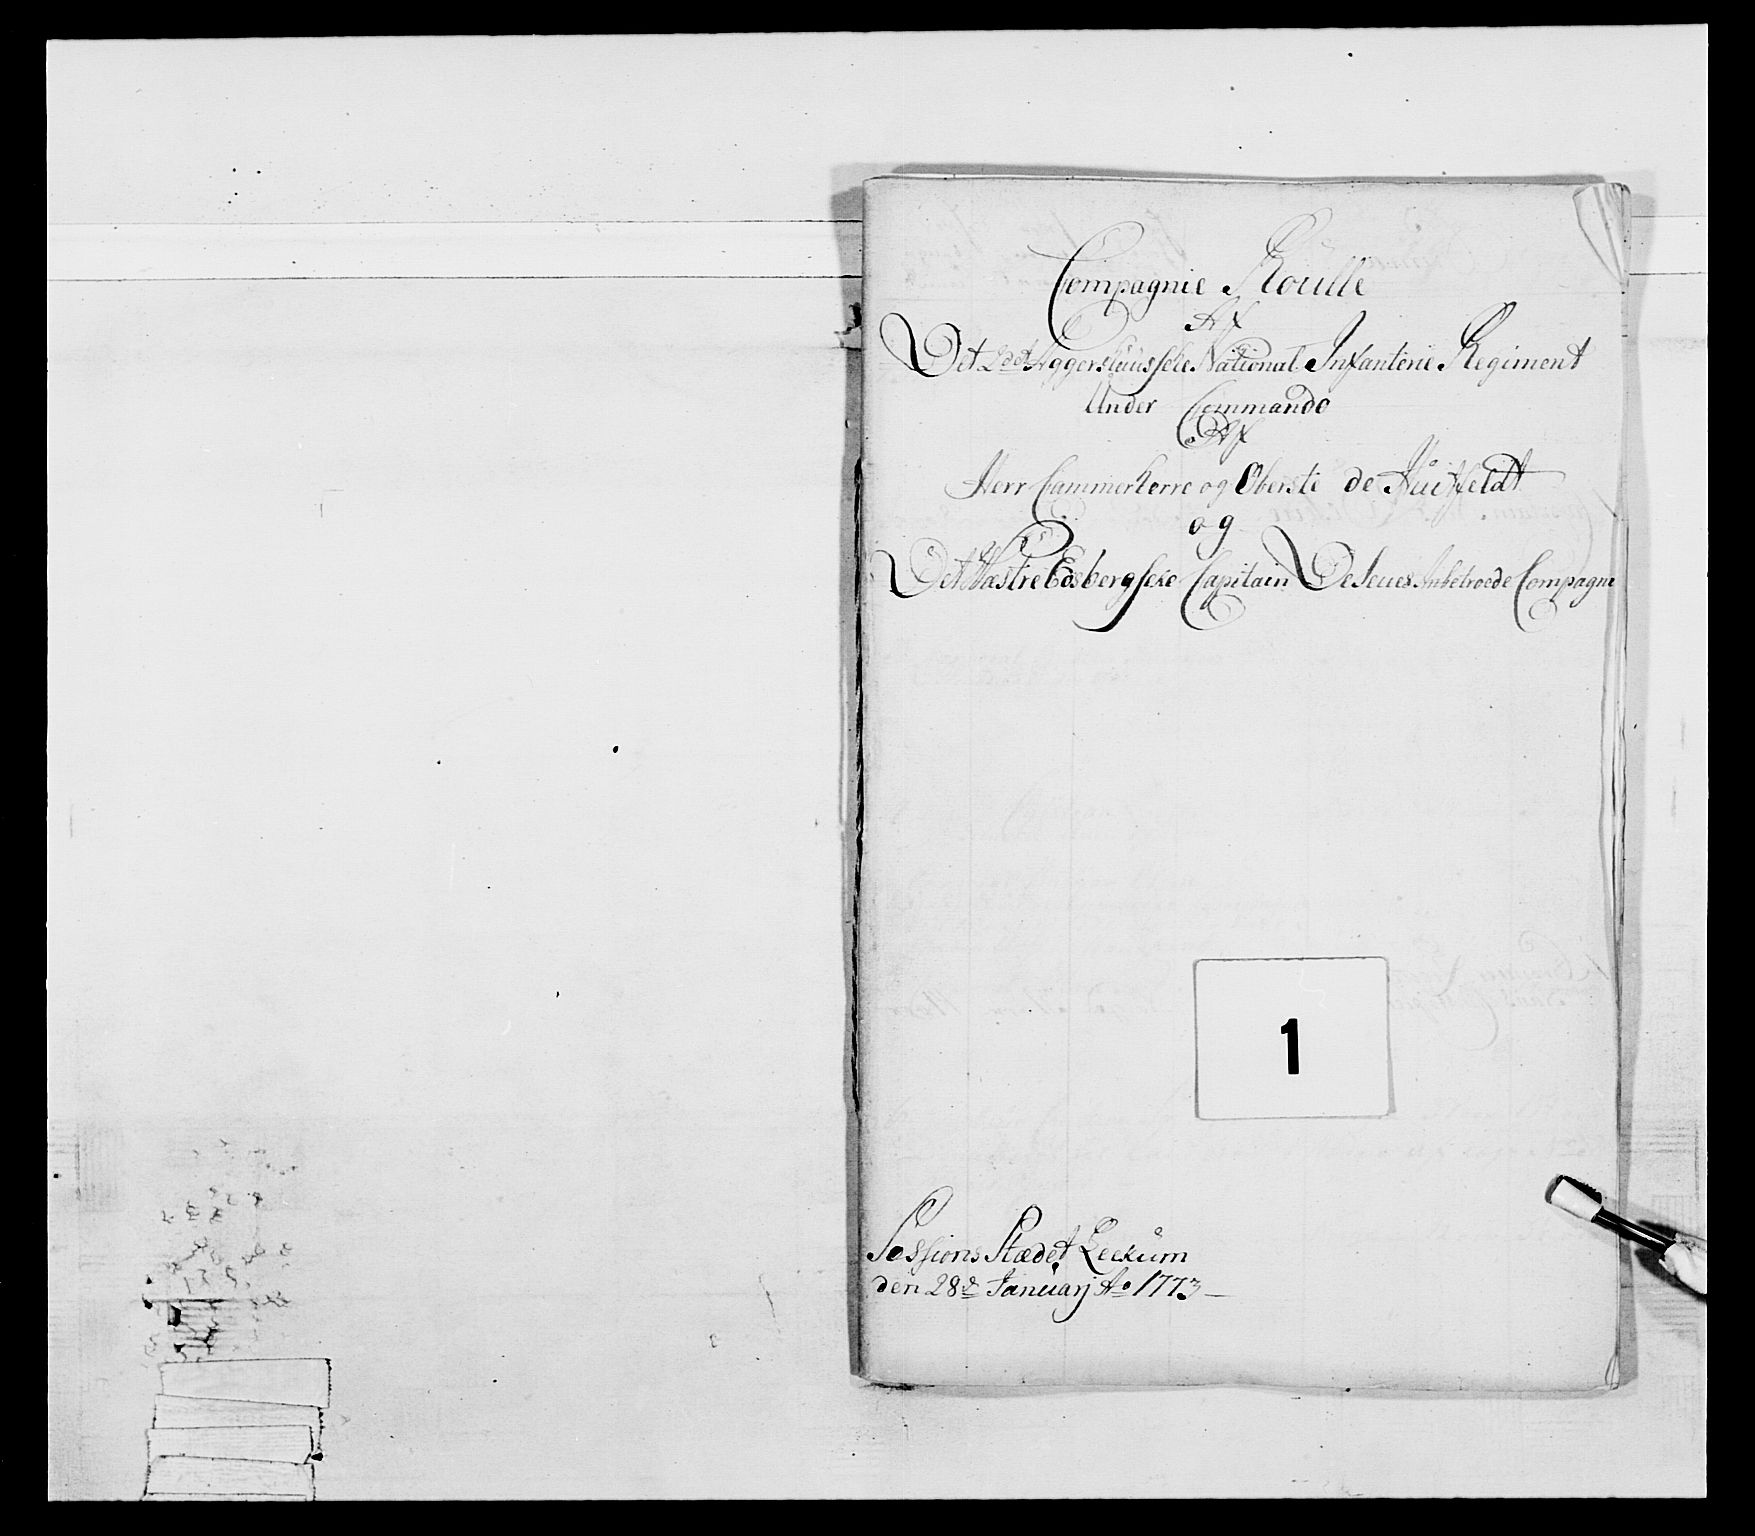 Compagnie Roulle
Af
Det 2det Aggershuussche National Infanterie Regiment
Under Commando
Af
Herr Cammerherre og Oberste de Huitfeldt
og
Det Wæstre Edsbergsche Capitain De Seues Anbetroede Compagnie
1
Sessions Stædet Leckum
den 28de Januarj Ao 1773